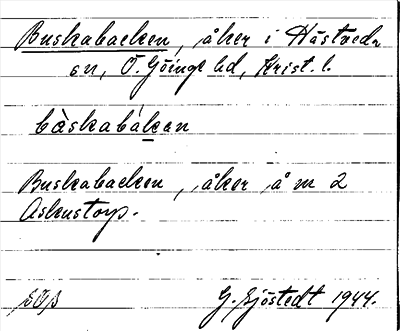 Buskabacken, åker i Hästveda
sn, Ö. Göinge hd, Krist. l.
bàskabákan
Buskabacken, åker å nr 2
Askustorp.
G. Sjöstedt 1944.